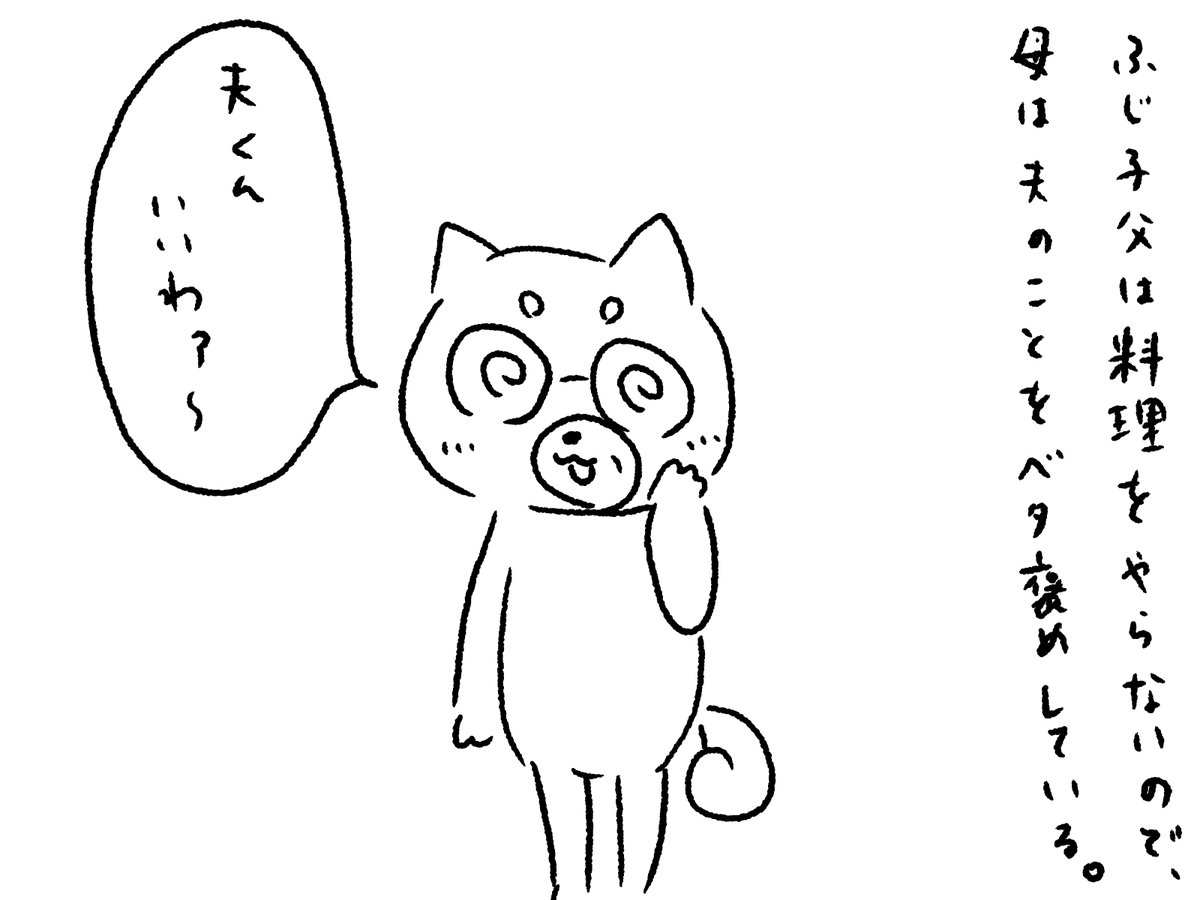 ふじ子父は料理をやらないので、
母は夫のことをベタ褒めしている。
夫くん
いいわァ〜